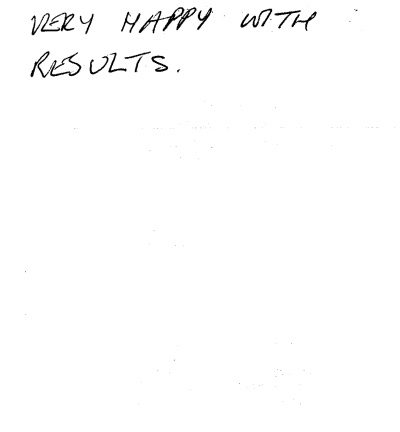 VERY HAPPY WITH
RESULTS.